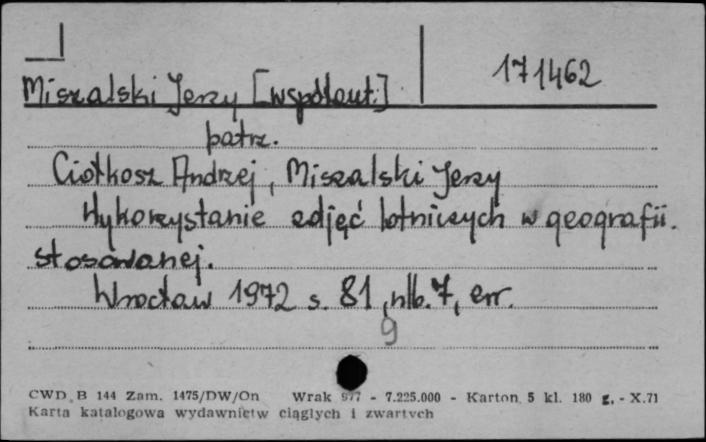 Miszalski Jerzy [współaut.] 171462
patrz.
Ciołkosz Andrzej, Miszalski Jerzy
Wykorzystanie zdjęć lotniczych w geografii.
stosowanej.
Wrocław 1972 s. 81, nlb. 7, err.
9
CWD, B 144 Zam. 1475/DW/On Wrak 977 - 7.225.000 - Karton. 5 kl. 180 g. - X.71
Karta katalogowa wydawnictw ciągłych i zwartych